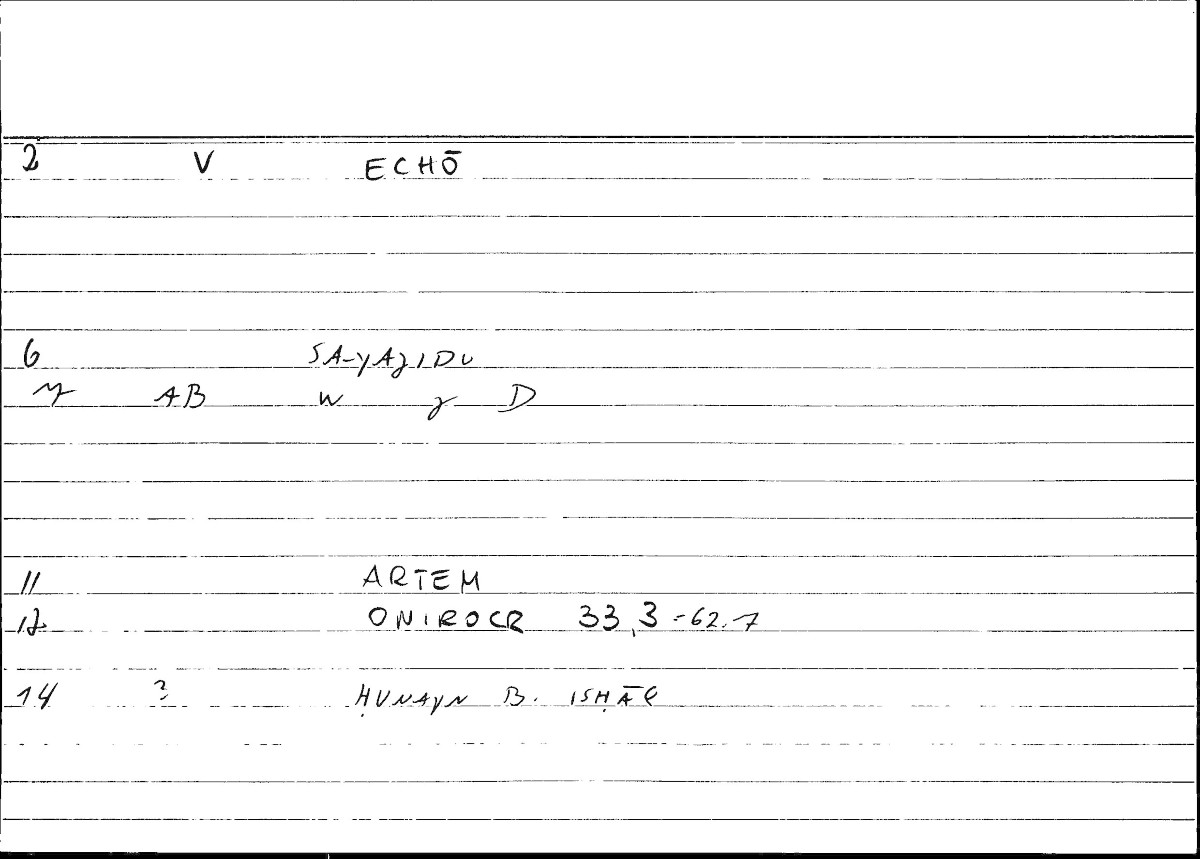 2 V ECHŌ
6 SA-YAZIDU
AB W Z D
11 ARTEM
12 ONIROCR 33,3-62.7
14 ? ḤUNAYN B. ISḤĀQ